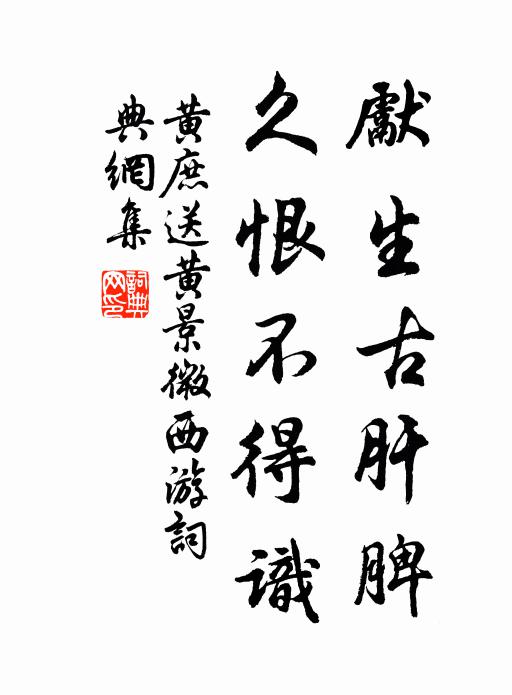 獻生古肝脾
久恨不得識
黄庶送黄景微西游詞
典網集
詞典網印